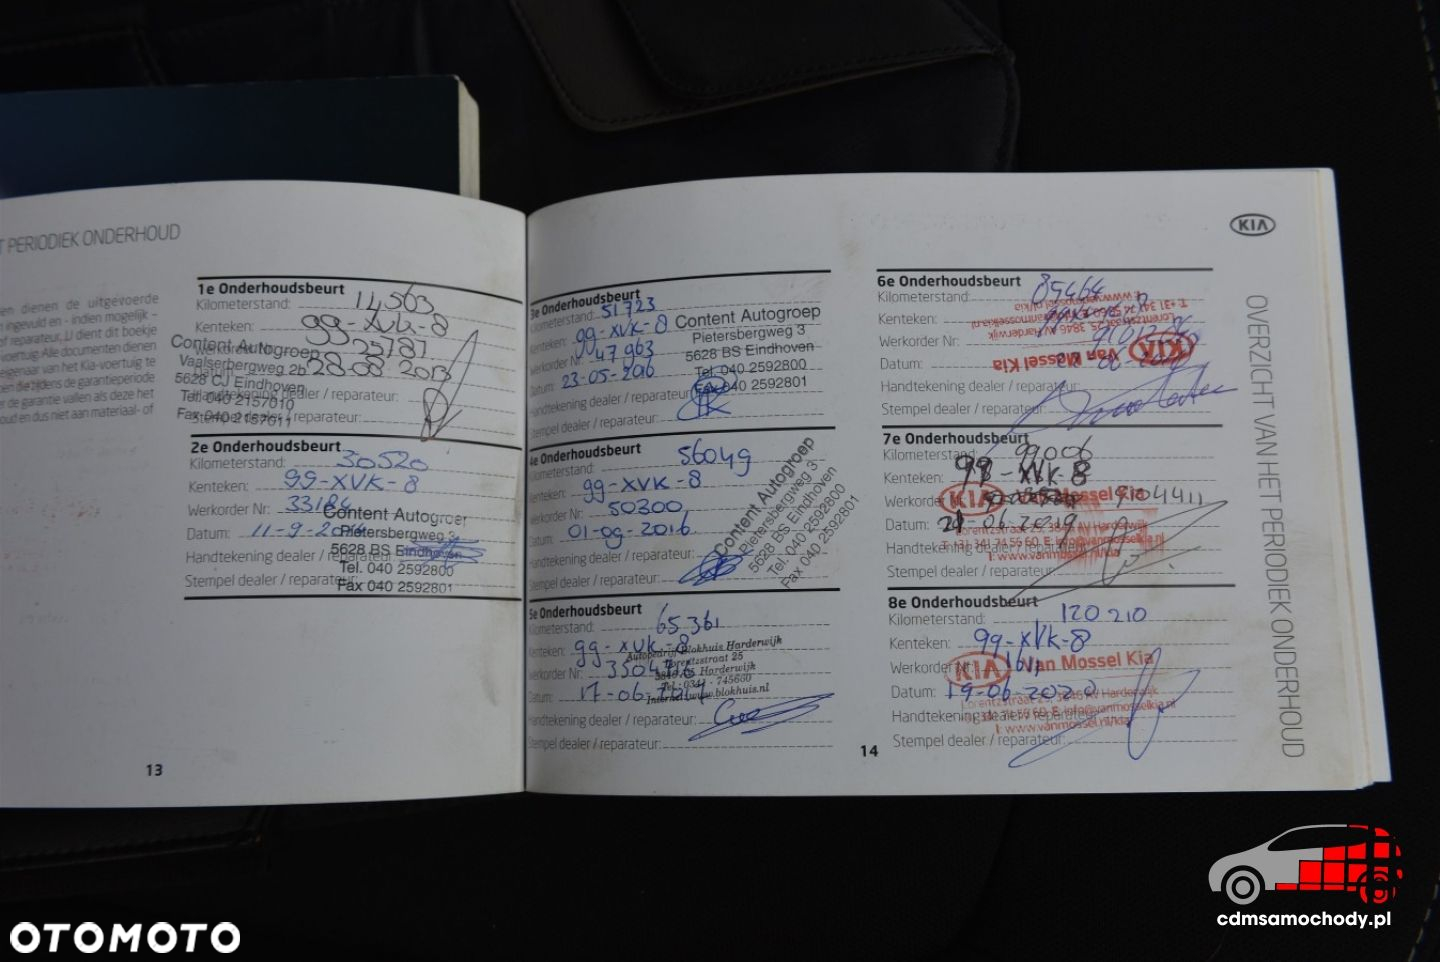 T PERIODIEK ONDERHOUD
en dienen de uitgevoerde
ingevuld en - indien mogelijk -
of reparateur. U dient dit boekje
voertuig. Alle documenten dienen
eigenaar van het Kia-voertuig te
tijdens de garantieperiode
er de garantie vallen als deze het
oud en dus niet aan materiaal- of
1e Onderhoudsbeurt
Kilometerstand: 14563
Kenteken: 99-XVK-8
Werkorder Nr: 25781
Datum: 28-08-2013
Handtekening dealer / reparateur:
Stempel dealer / reparateur:
Content Autogroep
Vaalserbergweg 2b
5628 CJ Eindhoven
Tel. 040 2157010
Fax 040 2157011
2e Onderhoudsbeurt
Kilometerstand: 30520
Kenteken: 99-XVK-8
Werkorder Nr: 33184
Datum: 11-9-2014
Handtekening dealer / reparateur:
Stempel dealer / reparateur:
Content Autogroep
Pietersbergweg 3
5628 BS Eindhoven
Tel. 040 2592800
Fax 040 2592801
13
3e Onderhoudsbeurt
Kilometerstand: 51723
Kenteken: 99-XVK-8
Werkorder Nr: 47963
Datum: 23-05-2016
Handtekening dealer / reparateur:
Stempel dealer / reparateur:
Content Autogroep
Pietersbergweg 3
5628 BS Eindhoven
Tel. 040 2592800
Fax 040 2592801
4e Onderhoudsbeurt
Kilometerstand: 56049
Kenteken: 99-XVK-8
Werkorder Nr: 50300
Datum: 01-09-2016
Handtekening dealer / reparateur:
Stempel dealer / reparateur:
Content Autogroep
Pietersbergweg 3
5628 BS Eindhoven
Tel. 040 2592800
Fax 040 2592801
5e Onderhoudsbeurt
Kilometerstand: 65361
Kenteken: 99-XVK-8
Werkorder Nr:
Datum: 17-06-
Handtekening dealer / reparateur:
Stempel dealer / reparateur:
Autobedrijf Blokhuis Harderwijk
Lorentzstraat 25
Harderwijk
Tel.: 0341 - 745660
Internet: www.blokhuis.nl
14
KIA
6e Onderhoudsbeurt
Kilometerstand: 85464
Kenteken:
Werkorder Nr:
Datum:
Handtekening dealer / reparateur:
Stempel dealer / reparateur:
KIA Van Mossel Kia
7e Onderhoudsbeurt
Kilometerstand: 99006
Kenteken: 99-XVK-8
Werkorder 9104411
Datum: 21-06-2019
Handtekening dealer / reparateur:
Stempel dealer / reparateur:
KIA Van Mossel Kia
8e Onderhoudsbeurt
Kilometerstand: 120210
Kenteken: 99-XVK-8
Werkorder Nr:
Datum: 19-06-2020
Handtekening dealer / reparateur:
Stempel dealer / reparateur:
KIA Van Mossel Kia
Lorentzstraat 25, 3846 AV Harderwijk
OVERZICHT VAN HET PERIODIEK ONDERHOUD
OTOMOTO
cdmsamochody.pl